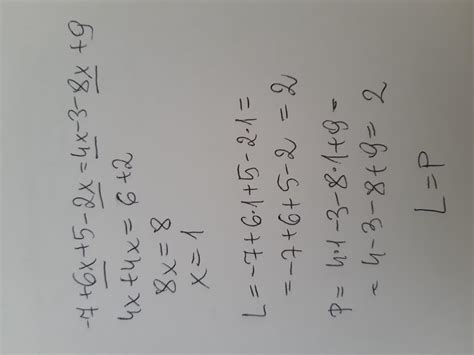 -7+6x+5-2x=4x-3-8x+9
4x+4x=6+2
8x=8
x=1
L=-7+6·1+5-2·1=
=-7+6+5-2=2
P=4·1-3-8·1+9=
=4-3-8+9=2
L=P